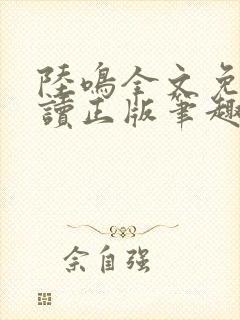 陸鳴全文免
讀正版筆趣
佘自强